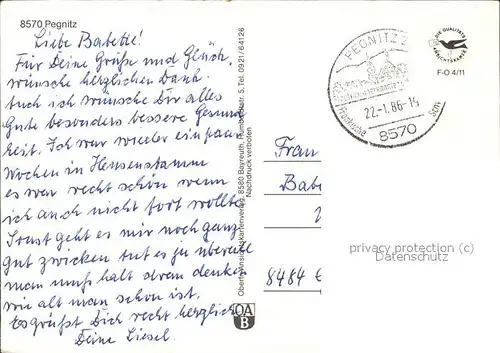 8570 Pegnitz
Liebe Babette!
Für Deine Grüße und Glück
wünsche herzlichen Dank.
Auch ich wünsche Dir alles
Gute besonders bessere Gesund
heit. Ich war wieder ein paar
Wochen in Heusenstamm
es war recht schön wenn
ich auch nicht fort wollte
Sonst geht es mir noch ganz
gut zwicken tut es ja überall
man muß halt daran denken
wie alt man schon ist.
Es grüßt Dich recht herzlich
Deine Liesel.
Oberfr. Ansichtskartenverlag, 8580 Bayreuth, 5, Tel. 0921/64126
Nachdruck verboten
OA
B
PEGNITZ 2
22.-1.86-14
Fränkische Sch
8570
DIE QUALITÄTS
ANSICHTSKARTE
F-O 4/11
Frau
Bab
8484
privacy protection (c)
Datenschutz